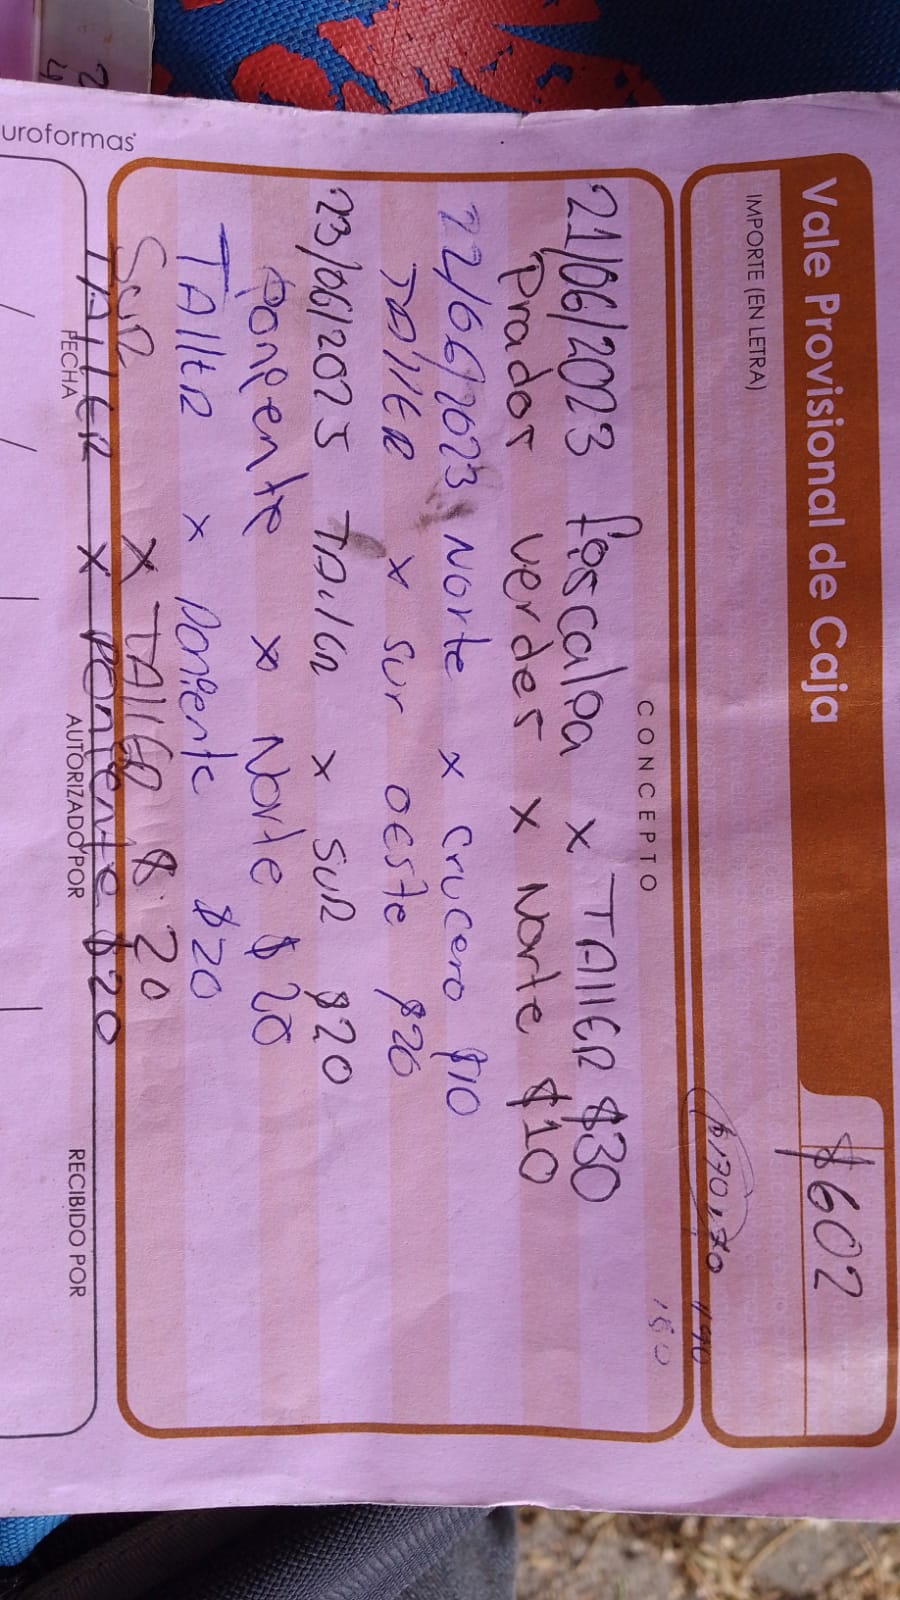 Vale Provisional de Caja
$602
IMPORTE (EN LETRA)
CONCEPTO
21/06/2023 foscalpa x TAllER $30
Prados verdes x Norte $10
22/06/2023 Norte x Crucero $10
TAllER x sur oeste $20
23/06/2023 TAllER x SUR $20
Poniente x Norte $20
TAllER x Poniente $20
SUR x TAllER $20
TAllER x Poniente $20
FECHA
AUTORIZADO POR
RECIBIDO POR
uroformas